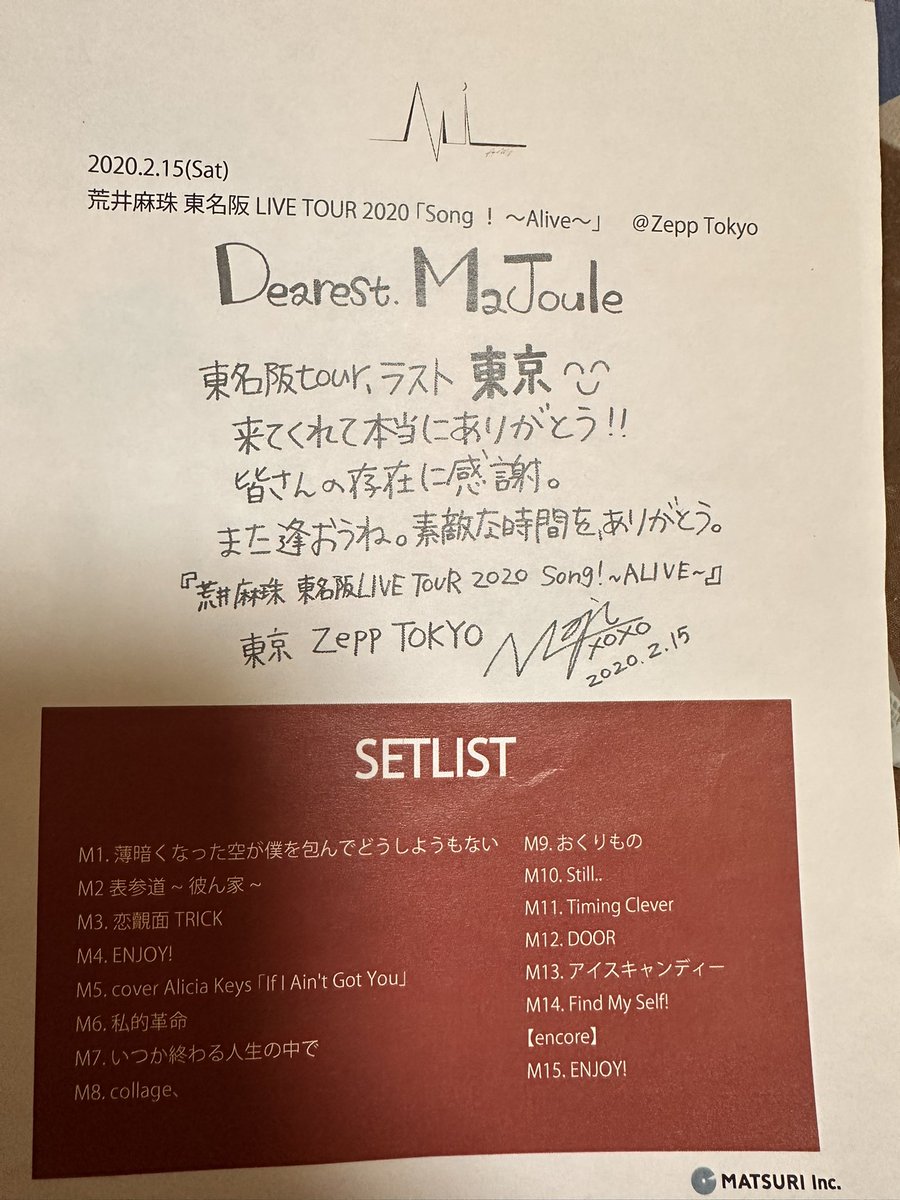 2020.2.15(Sat)
荒井麻珠 東名阪 LIVE TOUR 2020「Song ! ～Alive～」 @Zepp Tokyo
Dearest. MaJoule
東名阪tour、ラスト 東京
来てくれて本当にありがとう!!
皆さんの存在に感謝。
また逢おうね。素敵な時間を、ありがとう。
『荒井麻珠 東名阪LIVE TOUR 2020 Song!~ALIVE~』
東京 Zepp TOKYO
XOXO
2020.2.15
SETLIST
M1. 薄暗くなった空が僕を包んでどうしようもない
M2 表参道 ~ 彼ん家 ~
M3. 恋覿面 TRICK
M4. ENJOY!
M5. cover Alicia Keys「If I Ain't Got You」
M6. 私的革命
M7. いつか終わる人生の中で
M8. collage、
M9. おくりもの
M10. Still..
M11. Timing Clever
M12. DOOR
M13. アイスキャンディー
M14. Find My Self!
【encore】
M15. ENJOY!
MATSURI Inc.